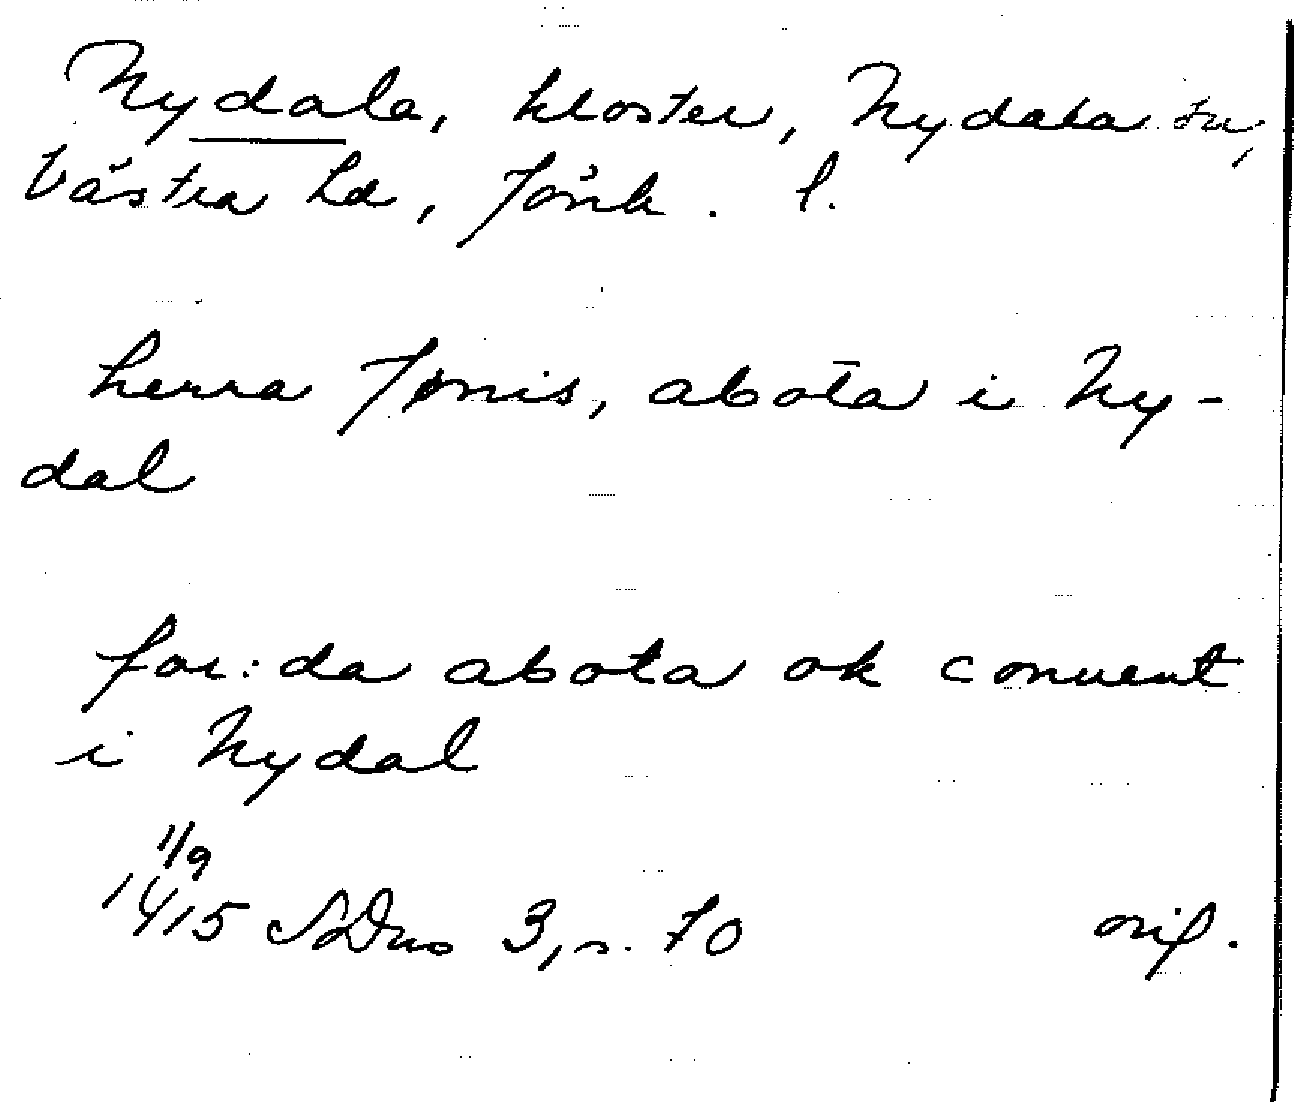 Nydala, kloster, Nydala sn,
Västra hd, Jönk. l.
herra Jønis, abota i Ny-
dal
for:da abota ok conuent
i Nydal
1/9
1415 SdDns 3, s. 70 orig.